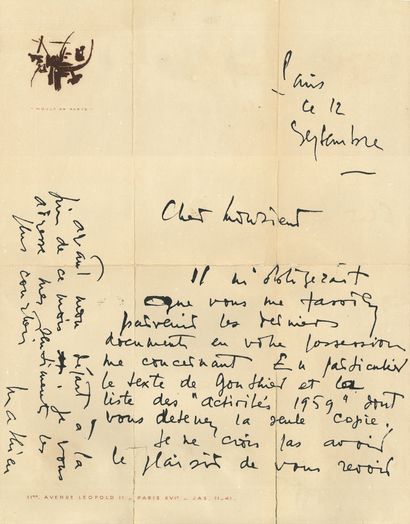 Paris
ce 12
Septembre
Cher Monsieur
Il m'obligerait
que vous me fassiez
parvenir les derniers
document en votre possession
me concernant En particulier
le texte de Gonthier et la
liste des "activités 1959" dont
vous detenez la seule copie.
Je ne crois pas avoir
le plaisir de vous revoir
avant mon départ à la
fin de ce mois. Je vous
adresse mes sentiments les
plus courtois
Mathieu
11bis, AVENUE LÉOPOLD II - PARIS XVIe - JAS. 11-41.